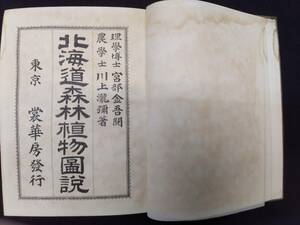 理學博士 宮部金吾閱
農學士 川上瀧彌著
北海道森林植物圖說
東京 裳華房發行